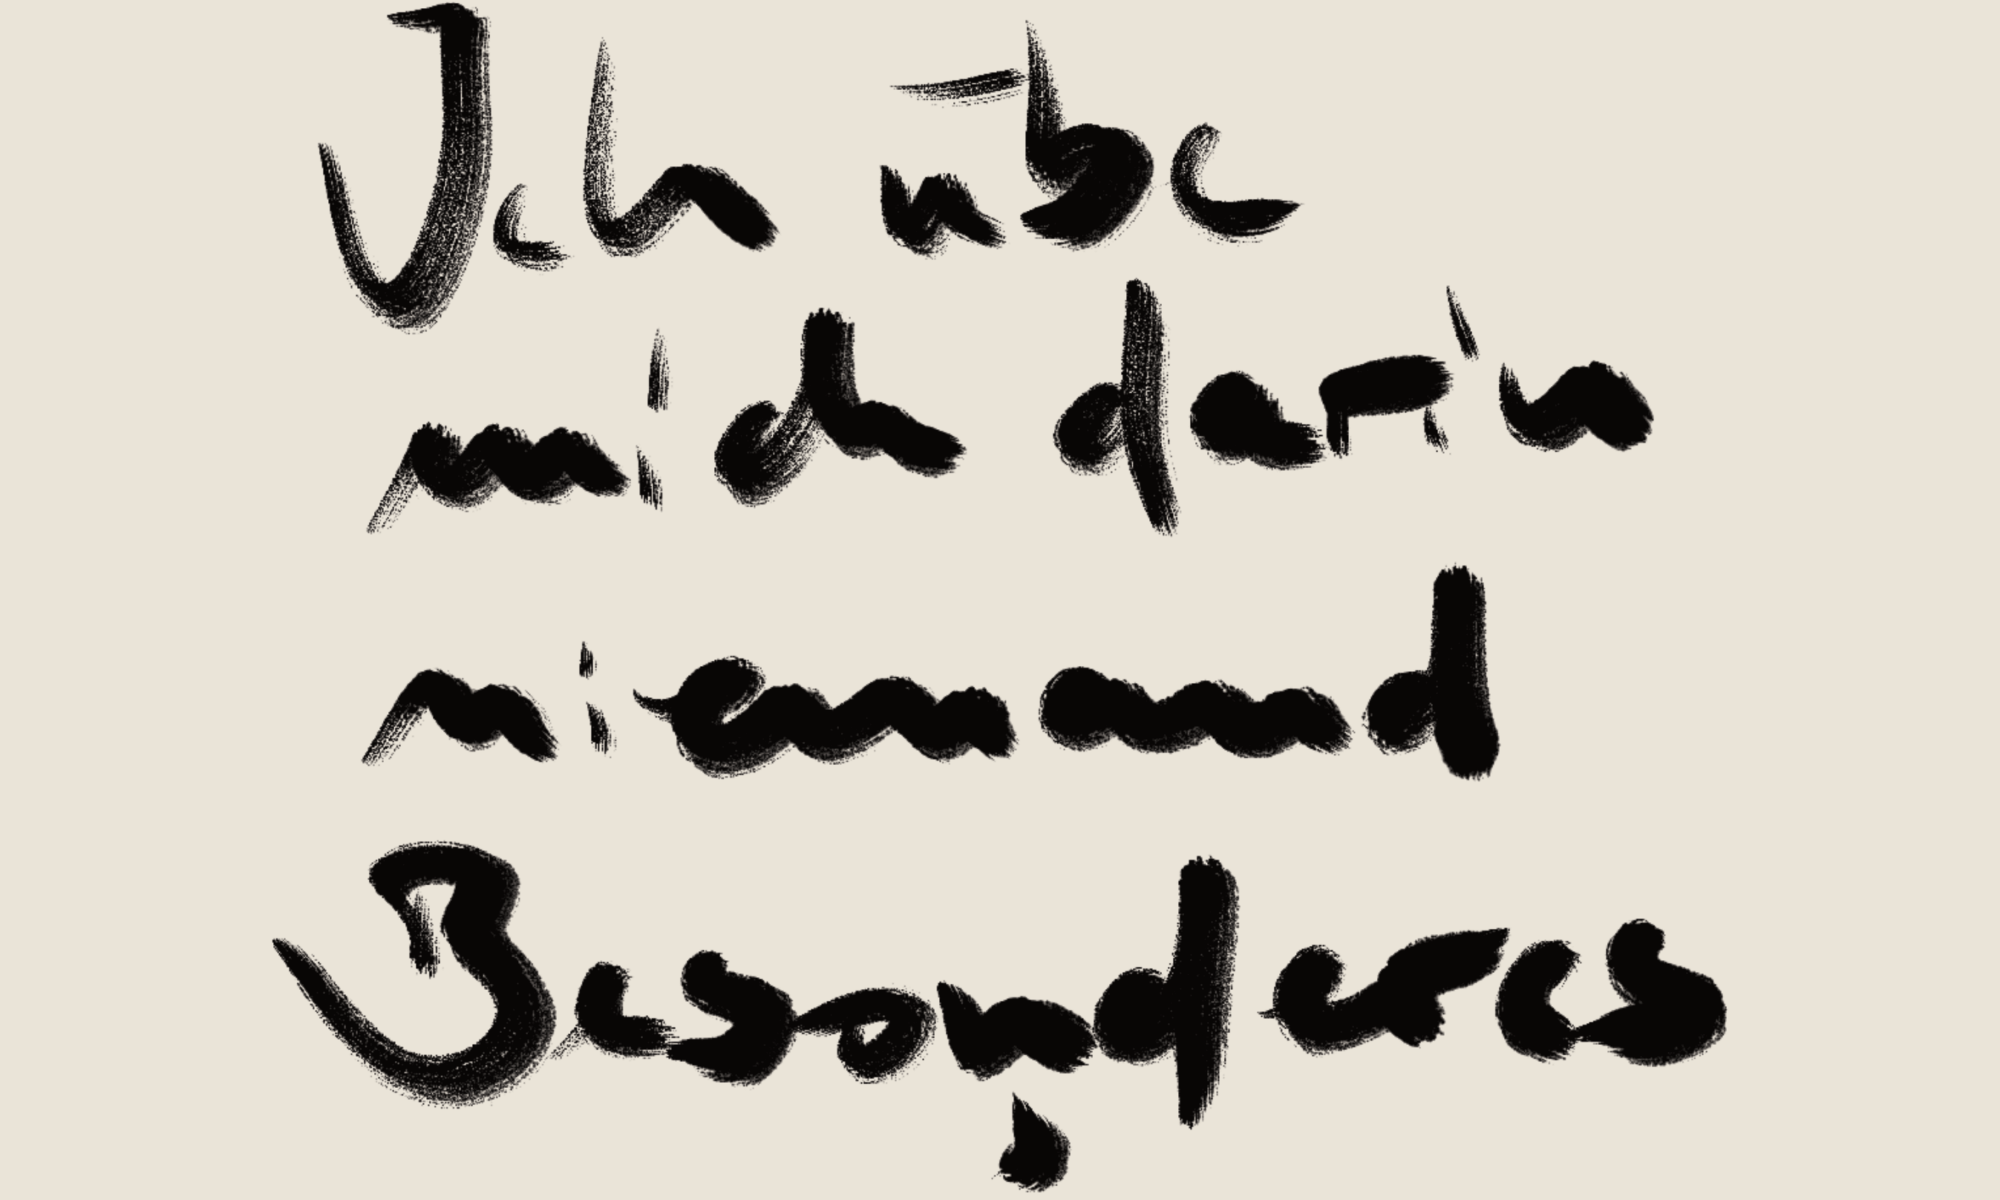 Ich übe
mich darin
niemand
Besonderes